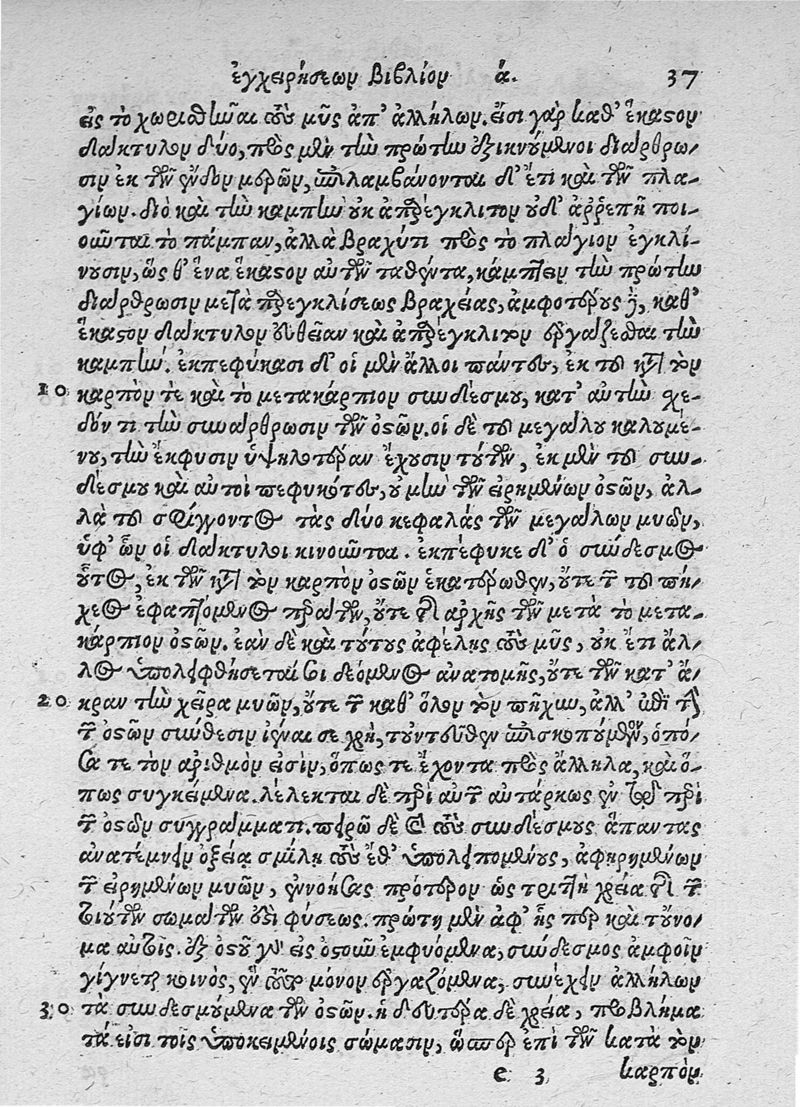 ἐγχειρήσεων βιβλίον ά. 37
εἰς τὸ χωρισθῆναι τοὺς μῦς ἀπ' ἀλλήλων. εἰσὶ γὰρ καθ' ἕκαστον
δάκτυλον δύο, πρὸς μὲν τὴν πρώτην ἐξικνούμενοι διάρθρω-
σιν ἐκ τῶν ἔνδον μερῶν, ἐπιλαμβάνονται δ' ἔτι καὶ τῶν πλα-
γίων. διὸ καὶ τὴν καμπὴν οὐκ ἀπαρέγκλιτον οὐδ' ἀῤῥεπῆ ποι-
οῦνται τὸ πάμπαν, ἀλλὰ βραχύ τι πρὸς τὸ πλάγιον ἐγκλί-
νουσιν, ὥς θ' ἕνα ἕκαστον αὐτῶν ταθέντα, κάμπτειν τὴν πρώτην
διάρθρωσιν μετὰ παρεγκλίσεως βραχείας, ἀμφοτέρους δὲ, καθ'
ἕκαστον δάκτυλον εὐθεῖαν καὶ ἀπαρέγκλιτον ἐργάζεσθαι τὴν
καμπήν. ἐκπεφύκασι δ' οἱ μὲν ἄλλοι πάντες, ἐκ τοῦ κατὰ τὸν
10 καρπόν τε καὶ τὸ μετακάρπιον συνδέσμου, κατ' αὐτὴν σχε-
δόν τι τὴν συνάρθρωσιν τῶν ὀστῶν. οἱ δὲ τοῦ μεγάλου καλουμέ-
νου, τὴν ἔκφυσιν ὑψηλοτέραν ἔχουσιν τούτων, ἐκ μὲν τοῦ συν-
δέσμου καὶ αὐτοὶ πεφυκότες, οὐ μὴν τῶν εἰρημένων ὀστῶν, ἀλ-
λὰ τοῦ σφίγγοντος τὰς δύο κεφαλὰς τῶν μεγάλων μυῶν,
ὑφ' ὧν οἱ δάκτυλοι κινοῦνται. ἐκπέφυκε δ' ὁ σύνδεσμος
οὗτος, ἐκ τῶν κατὰ τὸν καρπὸν ὀστῶν ἑκατέρωθεν, οὔτε τῶν τοῦ πή-
χεος ἐφαπτόμενος περάτων, οὔτε τῆς ἀρχῆς τῶν μετὰ τὸ μετα-
κάρπιον ὀστῶν. ἐὰν δὲ καὶ τούτους ἀφέλῃς τοὺς μῦς, οὐκ ἔτι ἄλ-
λος ὑπολειφθήσεταί σοι δεόμενος ἀνατομῆς, οὔτε τῶν κατ' ἄ-
20 κραν τὴν χεῖρα μυῶν, οὔτε τῶν καθ' ὅλον τὸν πῆχυν, ἀλλ' ἐπὶ τὴν
τῶν ὀστῶν σύνθεσιν ἰέναι σε χρὴ, τοὐντεῦθεν ἐπισκοπούμενον, ὁπό-
σα τε τὸν ἀριθμὸν εἰσὶν, ὅπως τε ἔχοντα πρὸς ἄλληλα, καὶ ὅ-
πως συγκείμενα. λέλεκται δὲ περὶ αὐτῶν αὐτάρκως ἐν τῷ περὶ
τῶν ὀστῶν συγγράμματι. πειρῶ δὲ καὶ τοὺς συνδέσμους ἅπαντας
ἀνατέμνειν ὀξείᾳ σμίλῃ τοὺς ἔθ' ὑπολειπομένους, ἀφῃρημένων
τῶν εἰρημένων μυῶν, ἐννοήσας πρότερον ὡς τριττὴ χρεία ἐστὶ τῶν
τοιούτων σωμάτων οὐδὲ φύσεως. πρώτη μὲν ἀφ' ἧς περ καὶ τοὔνο-
μα αὐτοῖς. ἐξ ὀστοῦ γὰρ εἰς ὀστοῦν ἐμφυόμενα, σύνδεσμος ἀμφοῖν
γίγνεται κοινὸς, ἓν τοῦτο μόνον ἐργαζόμενα, συνέχειν ἀλλήλων
30 τὰ συνδεσμούμενα τῶν ὀστῶν. ἡ δευτέρα δὲ χρεία, προβλήμα
τά εἰσι τοῖς ὑποκειμένοις σώμασιν, ὥσπερ ἐπὶ τῶν κατὰ τὸν
e 3 καρπὸν